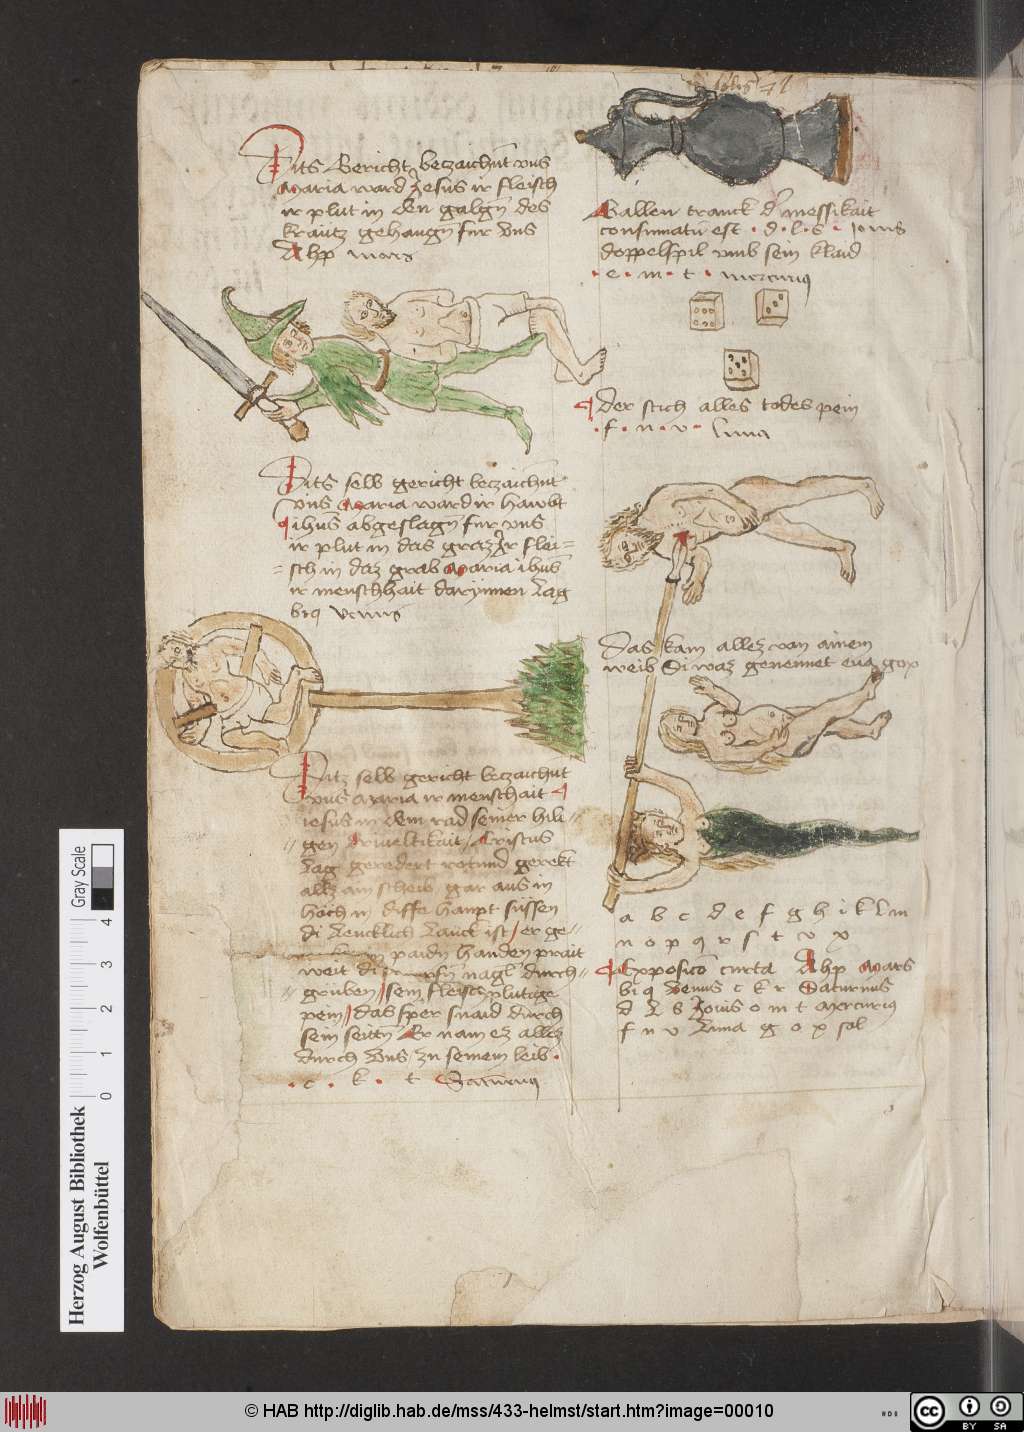 Dits Gericht bezaichent uns
Maria ward Jesus ir fleisch
ir plut in den galgn des
kräutz gehangn fur uns
Ahp mars
Dits selb gericht bezaichnt
uns Maria ward ir hawbt
ihus abgeslagn fur uns
ir plut in das graz Jr flei=
=sch in daz grab Maria ihus
ir menschhait darynnen lag
biq venus
Ditz selb gericht bezaichnt
uns Maria ir menschait
iesus in dem rad seiner hili=
=gen Cristus
lag geredert gerekt
allz am scheib gar aus in
höch in haupt füssen
ist er ge=
paidn handen prait
weit di nagl durch=
=gruben sein fleisch plutige
pein das sper snaid durch
sein seitn Er nam ez allez
durch uns zu seinem leib
c k t Saturnus
Gallen tranck der messikait
consumatu est d l s iovis
doppelspil umb sein klaid
e m t mercurius
der stich alles todes pein
f n v luna
Das kam allez von ainem
weib Di waz genennet eva gox
a b c d e f g h i k l m
n o p q r s t v x
Exposicio curta Ahp Mars
biq Venus c k r Saturnus
d l s Jovis o m t Mercurius
f n v Luna g o x sol
Herzog August Bibliothek
Wolfenbüttel
Gray Scale
0 1 2 3 4
© HAB http://diglib.hab.de/mss/433-helmst/start.htm?image=00010
BY SA